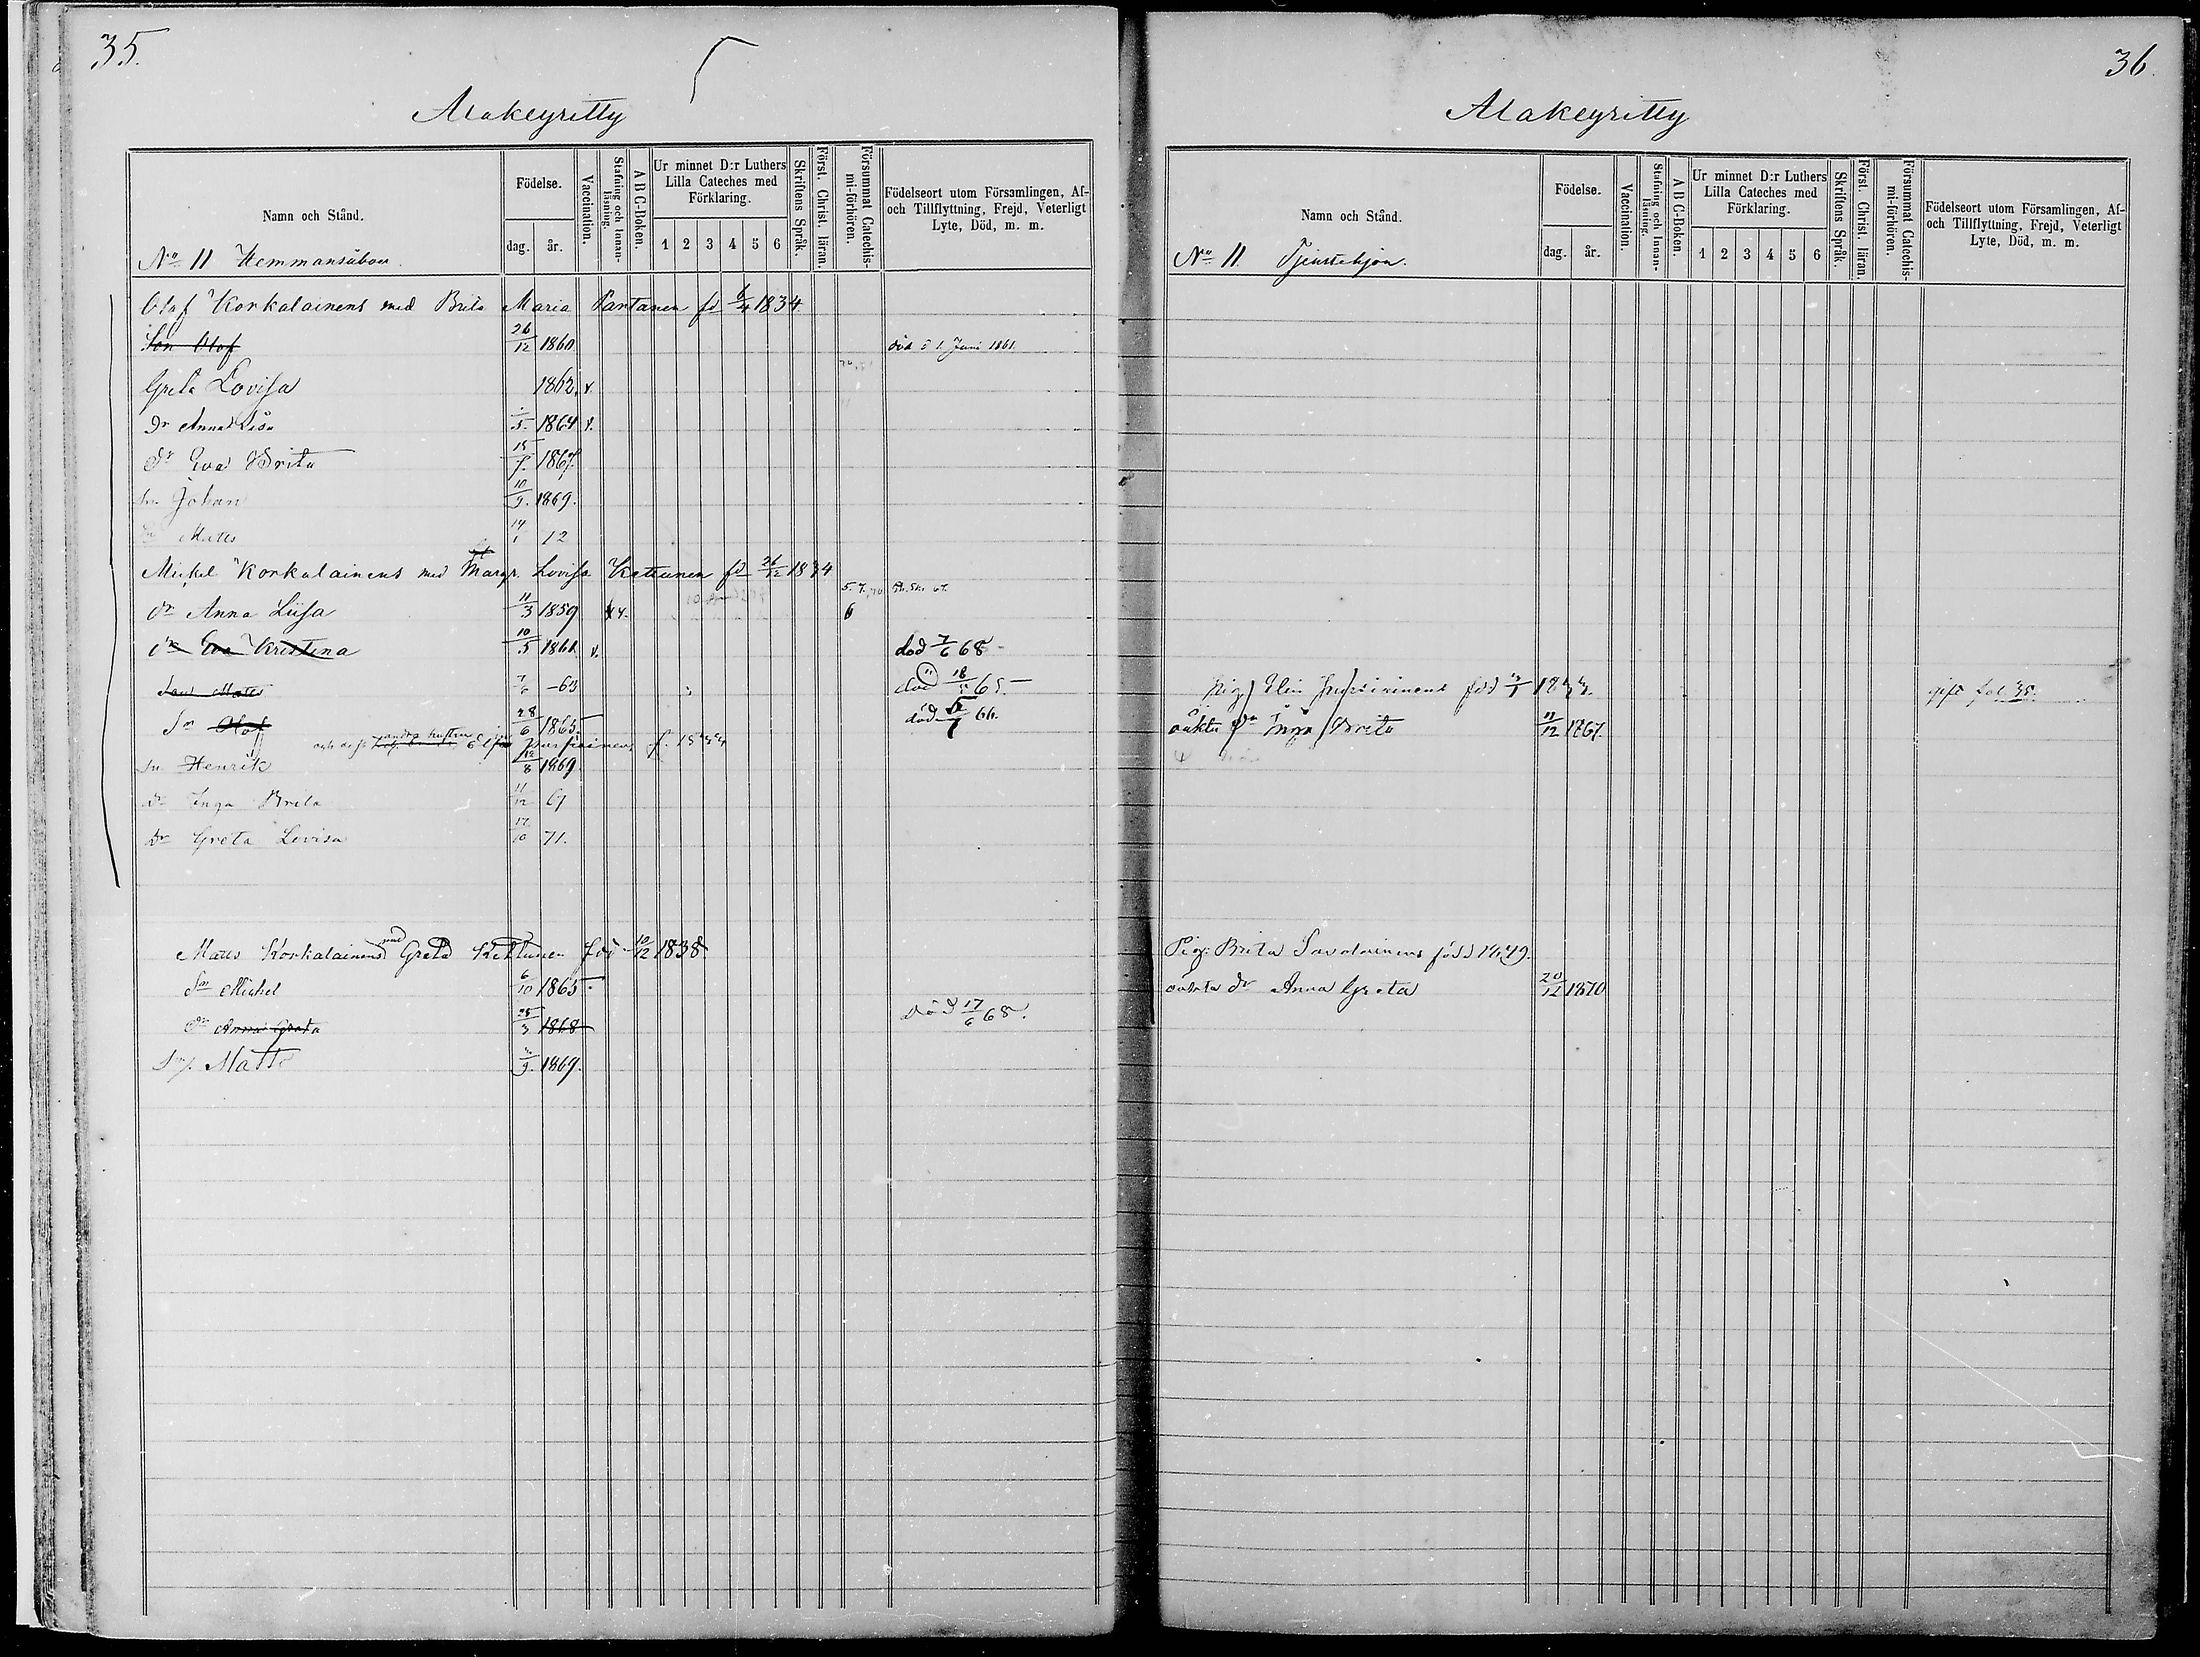 35.
Alakeyritty
Namn och Stånd.
Födelse.
dag. år.
Vaccination.
Stafning och Innan-
läsning.
A B C-Boken.
Ur minnet D:r Luthers
Lilla Cateches med
Förklaring.
1 2 3 4 5 6
Skriftens Språk.
Först. Christ. läran.
Försummat Catechis-
mi-förhören.
Födelseort utom Församlingen, Af-
och Tillflyttning, Frejd, Veterligt
Lyte, Död, m. m.
No 11 Hemmansåboer.
Olof Korkalainens med Brita Maria Partanen fd 6/4 1834.
Son Olof 26/12 1860. död d 1. Juni 1861.
Greta Lovisa 1862. v.
Dr Anna Lisa 1864 v.
Dr Eva Brita 15 1867.
Sn Johan 10/9. 1869.
Sn Matts 14/1 72
Mickel Korkalainens med Margr. Lovisa Kettunen fd 26/12 1834
Dr Anna Liisa 11/3 1859 v. 6
Dr Eva Kristina 10/5 1861. v. död 7/6 68
Son Matts 7/6 -63 död 18 65.
Sn Olof 28/6 1865 död 66.
andra hustru Elin Jussiainens f. 1844
Sn Henrik 8 1869.
Dr Inga Brita 11/12 67
Dr Greta Lovisa 17/10 71.
Matts Korkalainens med Greta Kettunen född 10/12 1838
Sn Michel 6/10 1865
Dr Anna Greta 25/3 1868 död 17/6 68.
Sn Matts 9. 1869.
36.
Alakeyritty
Namn och Stånd.
Födelse.
dag. år.
Vaccination.
Stafning och Innan-
läsning.
A B C-Boken.
Ur minnet D:r Luthers
Lilla Cateches med
Förklaring.
1 2 3 4 5 6
Skriftens Språk.
Först. Christ. läran.
Försummat Catechis-
mi-förhören.
Födelseort utom Församlingen, Af-
och Tillflyttning, Frejd, Veterligt
Lyte, Död, m. m.
No 11. Tjenstehjon.
Pig. Elin Jussiainens född 1844. gift fol 35.
oäkta Dr Inga Brita 11/12 1867.
Pig: Brita Savolainens född 1849.
oäkta dr Anna Greta 20/12 1870